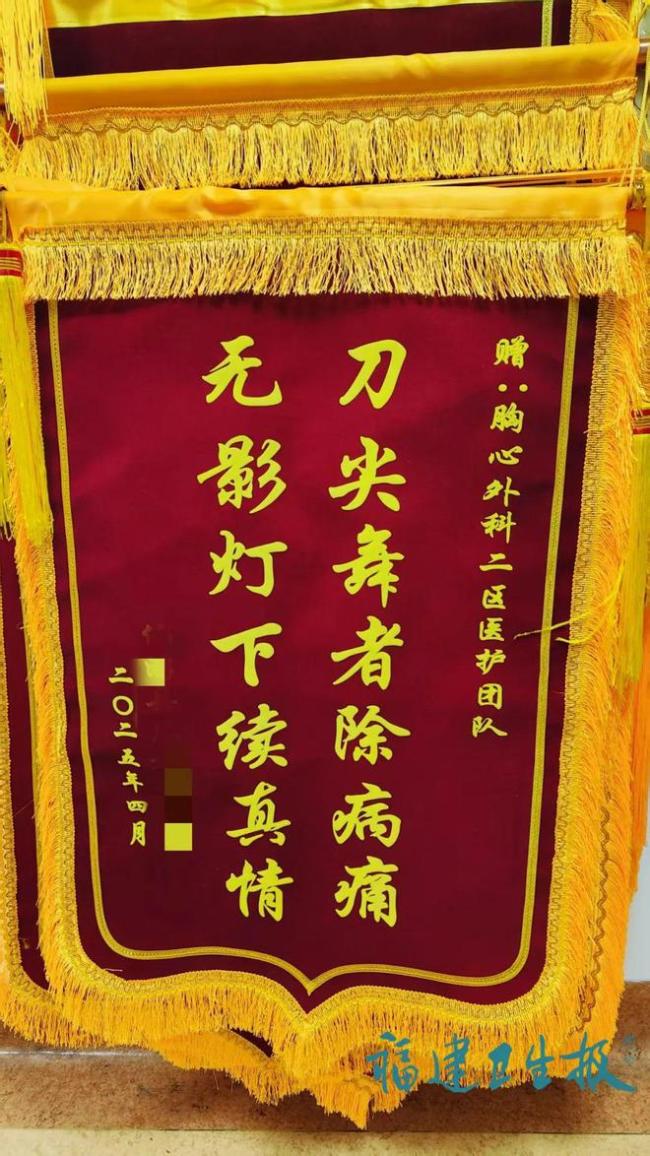 赠：胸心外科二区医护团队
刀尖舞者除病痛
无影灯下续真情
二〇二五年四月
福建卫生报